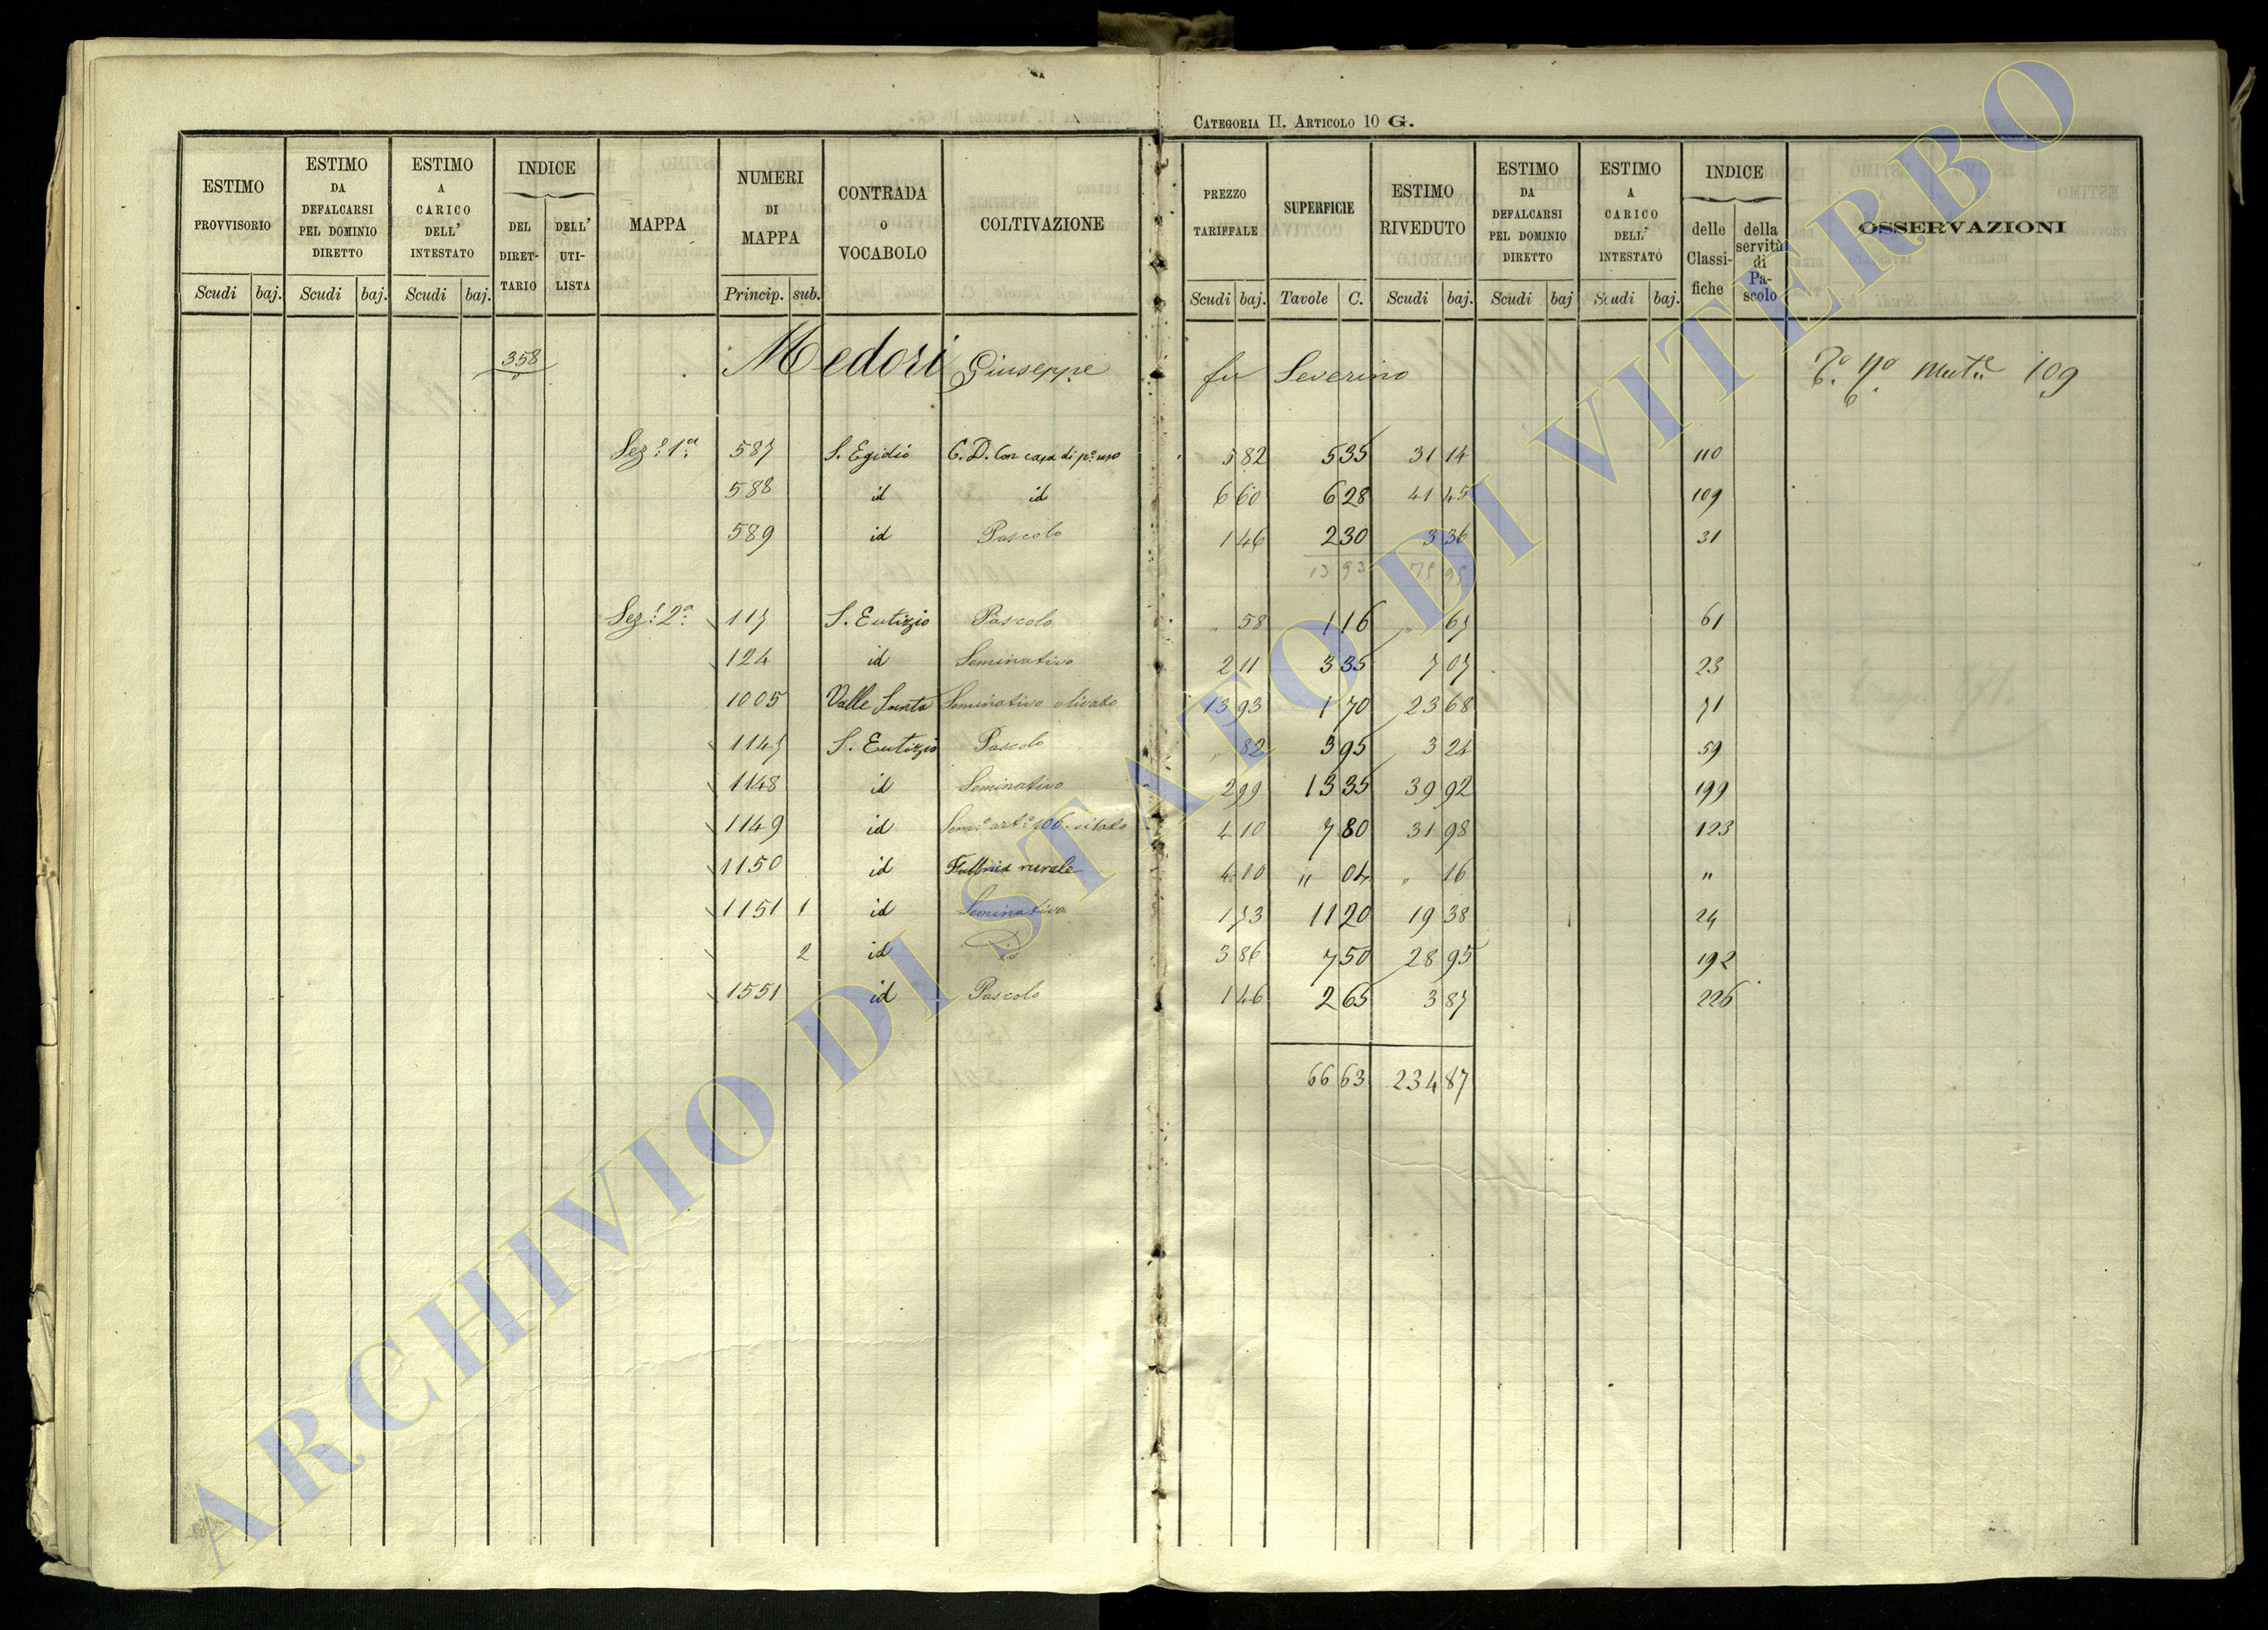 CATEGORIA II. ARTICOLO 10 G.
ESTIMO PROVVISORIO Scudi baj.
ESTIMO DA DEFALCARSI PEL DOMINIO DIRETTO Scudi baj.
ESTIMO A CARICO DELL' INTESTATO Scudi baj.
INDICE DEL DIRETTARIO DELL' UTILISTA
MAPPA
NUMERI DI MAPPA Princip. sub.
CONTRADA o VOCABOLO
COLTIVAZIONE
PREZZO TARIFFALE Scudi baj.
SUPERFICIE Tavole C.
ESTIMO RIVEDUTO Scudi baj.
ESTIMO DA DEFALCARSI PEL DOMINIO DIRETTO Scudi baj
ESTIMO A CARICO DELL' INTESTATO Scudi baj.
INDICE delle Classifiche della servitù di Pascolo
OSSERVAZIONI
358 Medori Giuseppe fu Severino 109
Sez:e 1a: 587 S. Egidio C.D. Con casa di po: uso 5 82 5 35 31 14 110
588 id id 6 60 6 28 41 45 109
589 id Pascolo 1 46 2 30 3 36 31
13 93 75 95
Sez:e 2a: 117 S. Eutizio Pascolo " 58 1 16 " 67 61
124 id Seminativo 2 11 3 35 7 07 23
1005 Valle Santa Seminativo olivato 13 93 1 70 23 68 71
1147 S. Eutizio Pascolo " 82 3 95 3 24 59
1148 id Seminativo 2 99 13 35 39 92 199
1149 id Sem:o art:o 106. vitato 4 10 7 80 31 98 123
1150 id rurale 4 10 " 04 " 16 "
1151 1 id Seminativo 1 73 11 20 19 38 24
2 id id 3 86 7 50 28 95 192
1551 id Pascolo 1 46 2 65 3 87 226
66 63 234 87
ARCHIVIO DI STATO DI VITERBO